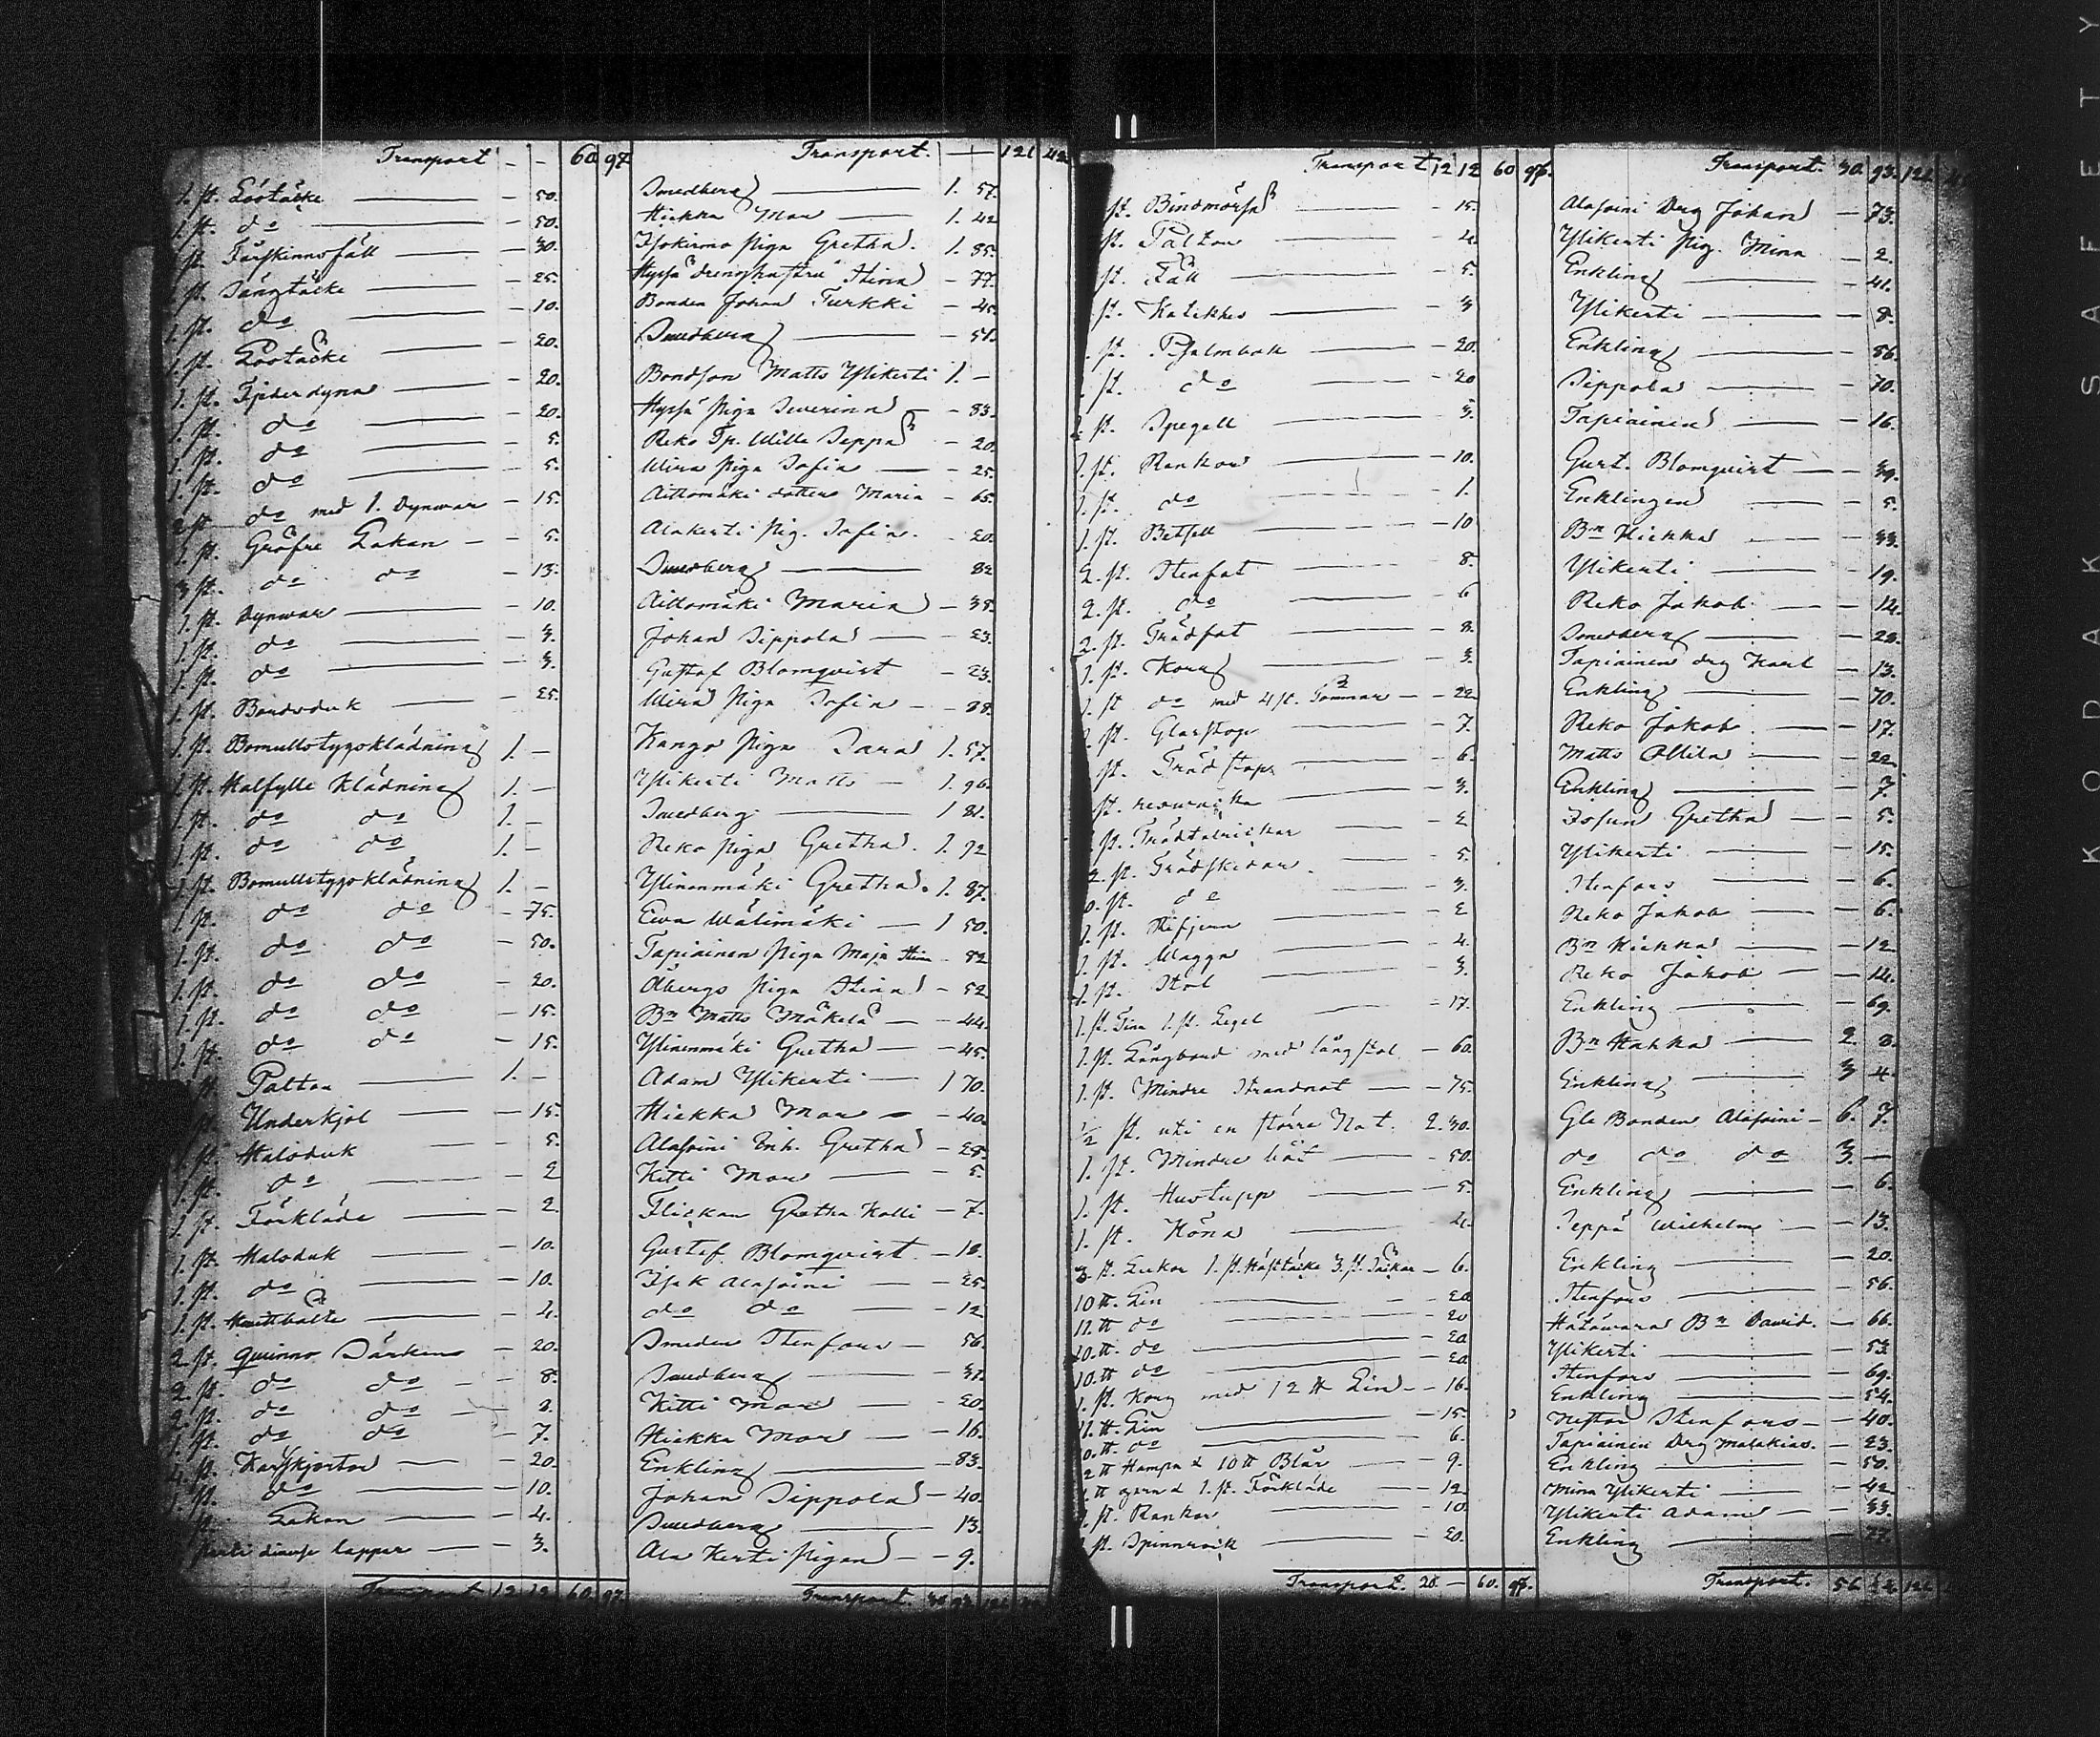 Transport - - 60 97 Transport. — 121 42
1. st. Lóstäcke — 50. Smedberg — 1. 57.
1. st. do — 50. Hiekka Mor — 1. 42
st. Fårskinnsfäll — 30. piga Gretha. 1. 85.
st. Sängtäcke — 25. Stina — 77.
1. st. do — 10. Bonden Johan Turkki — 45.
1. st. Lostäcke — 20. Smedberg — 51.
1. st. Fjäderdyna — 20. Bondson Matts Ylikerti 1. —
1. st. do — 20. Hyppä piga Severina — 83.
1. st. do — 5. Reko Tp. Wille Seppä — 20.
1. st. do — 5. Wira piga Sofia — 25.
2 st do med 1. Dynwar — 15. Aittomäki dotters Maria — 65.
1. st. Gröfre Lakan — 5. Alakerti Pig. Sofia. — 20.
3 st. do do — 13. Smedberg — 82
1. st. Dynwar — 10. Aittomäki Maria — 35.
1. st. do — 3. Johan Sippola — 23.
1. st. do — 3. Gustaf Blomqvist — 23.
1. st. Bordsduk — 25. Wira Piga Sofia — 88.
1. st. Bomullstygsklädning 1. — Kango Piga Sara 1. 57.
1. st. Halfylle Klädning 1. — Ylikerti Matts — 1. 96.
1. st. do do 1. — Smedberg — 1 81.
1. st. do do 1. — Reko Piga Gretha. 1. 92
1. st. Bomullstygsklädning 1. — Ylinenmäki Gretha. 1. 87.
1. st. do do — 75. Ewa Wälimäki — 1 50.
1. st. do do — 50. Tapiainen Piga Maja Stin — 82
1. st. do do — 20. Åbergs Piga Stina — 52.
1. st. do do — 15. Bn Matts Mäkelä — 44.
1. st. do do — 15. Ylinenmäki Gretha — 45.
st. Paltan — 1. — Adam Ylikerti — 1 70.
st. Underkjol — 15. Hiekka Mor — 40.
1. st. Halsduk — 5. Alasoini Enk. Gretha — 28.
1. st. do — 2 Kitti Mor — 5.
1. st. Förkläde — 2. Flickan Gretha Kalli — 7.
1. st. Halsduk — 10. Gustaf Blomqvist — 18.
1. st. do — 10. Isak Alasoini — 25.
1. st. — 4. do do — 12
2. st. Quinno Särkens — 20. Smeden Stenfors — 56.
2. st. do do — 8. Smedberg — 31.
2. st. do do — 8. Kitti Mor — 20.
1. st. do do — 7. Hiekka Mor — 16.
4. st. Karskjortor — 20. Enkling — 83.
1. st. do — 10. Johan Sippola — 40.
Lakan — 4. Smedberg — 13.
diverse lappar — 3. Ala Kerti Pigan — 9.
Transport 12 12 60. 97. Transport. 30 93 121
Transport 12 12 60 97. Transport. 30. 93. 121
st. Bindmössa — 15. Alasoini Drg Johan — 73.
st. Paltan — 4. Ylikerti Pig. Mina — 2.
st. — 5. Enkling — 41.
st. Katekhes — 3 Ylikerti — 8.
st. Psalmbok — 20. Enkling — 56.
st. do — 20 Sippola — 70.
st. Spegell — 3. Tapiainen — 16.
1. st. Rankor — 10. Gust. Blomqvist — 39.
1. st. do — 1. Enklingen — 5.
1. st. Betsell — 10 Bn Hiekka — 33.
2. st. Stenfat — 8. Ylikerti — 19.
2. st. do — 6 Reko Jakob — 14.
2. st. Trädfat — 8. Smedberg — 28.
1. st. Korg — 3. Tapiainen drg Karl — 13.
1. st do med 4 st. — 22 Enkling — 70.
st. Glasstop — 7. Reko Jakob. — 17.
st. Trädstop — 6. Matts Ollila — 22
st. — 3. Enkling — 7.
st. Trädtalrickar — 2 Gretha — 5.
2. st. Trädskedar. — 5. Ylikerti — 15.
st. do — 3. Stenfors — 6.
1. st. Rifjern — 2 Reko Jakob — 6.
1. st. Wagga — 4. Bn Hiekka — 12
1. st. Stol — 3. Reko Jakob — 14.
1. st. Tina 1. st. Legel — 17. Enkling — 69.
1. st. Långbord med långstol — 60. Bn Hahka — 2. 8.
1. st. Mindre Strandnot — 75. Enkling — 3 4
1/2 st. uti en större Not. 2. 30. Gle Bonden Alasoini — 6. 7.
1. st. Mindre båt — 50. do do do 3. —
1. st. Hustupp — 5. Enkling — 6.
1. st. Höna — 4. Seppä Wilhelm — 13.
3 st. Luckor 1. st. Hästtäcke 3. st. Säckar — 6. Enkling — 20.
10 ℔. Lin — 20 Stenfors — 56.
11. ℔ do — 20 Hätäwara Bn Dawid. — 66.
10. ℔. do — 20 Ylikerti — 53
10. ℔ do — 20 Stenfors — 69.
1. st. Korg med 12 ℔ Lin — 16. Enkling — 54.
11. ℔. Lin — 15. Nestor Stenfors — 40.
℔. do — 6. Tapiainen Drg Malakias. — 23.
2 ℔ Hampa & 10 ℔ Blår — 9. Enkling — 50.
℔ garn & 1. st. Förkläde — 12. Mina Ylikerti — 42
st. Rankor — 10 Ylikerti Adam — 33.
st. Spinnråck — 20. Enkling — 77.
Transport. 20. — 60. 97. Transport. 56 121
KODAK SAFETY